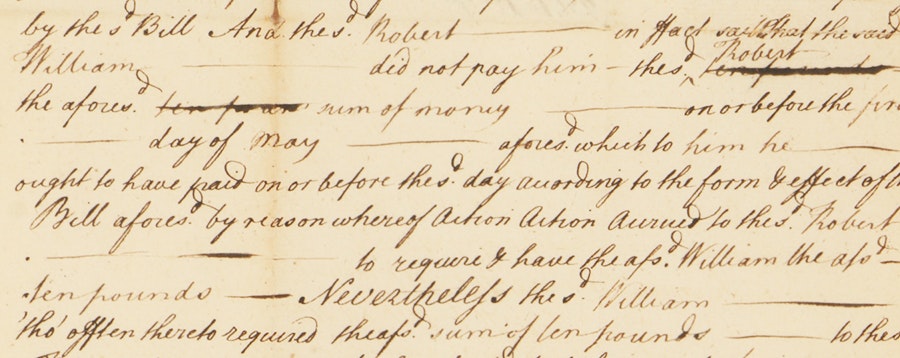 by the s.d Bill And the s.d Robert — in ffact saith that the said
William — did not pay him — the s.d Robert ten pounds
the afores.d ten poun sum of money — on or before the
— day of May — afores.d which to him he —
ought to have paid on or before the s.d day according to the form & effect of
Bill afores.d by reason whereof Action Action Accrued to the s.d Robert
— to require & have the afs.d William the afs.d —
ten pounds — Nevertheless the s.d William —
tho' offten thereto required the afs.d sum of ten pounds — to the